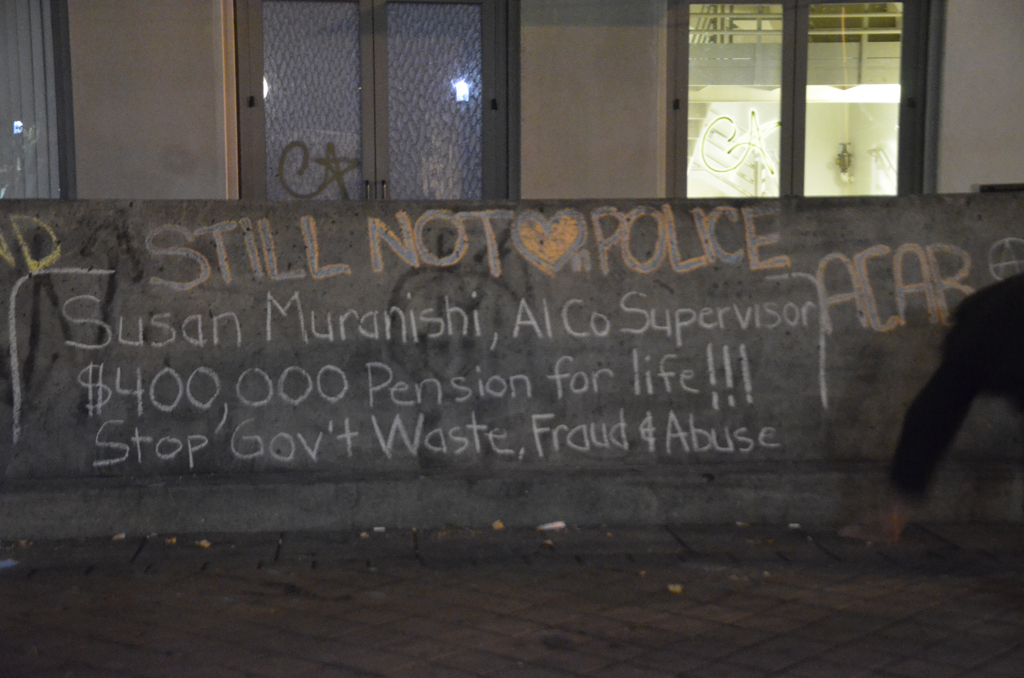 CA CA
ND STILL NOT ♥ POLICE ACAB
Susan Muranishi, Al Co Supervisor
$400,000 Pension for life!!!
Stop Gov't Waste, Fraud & Abuse